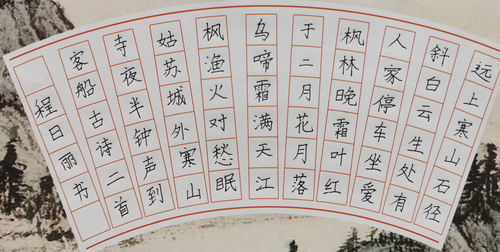 远上寒山石径
斜白云生处有
人家停车坐爱
枫林晚霜叶红
于二月花月落
乌啼霜满天江
枫渔火对愁眠
姑苏城外寒山
寺夜半钟声到
客船古诗二首
程日丽书